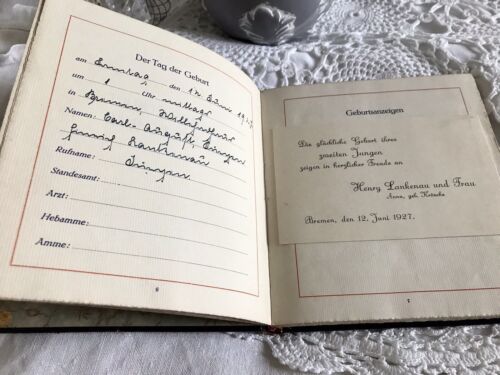 Der Tag der Geburt
am Sonntag den 12 Juni 1927
um 1 Uhr mittags
in Bremen,
Namen: Carl-August, Jürgen
Henrich Lankenau
Rufname: Jürgen
Standesamt:
Arzt:
Hebamme:
Amme:
6
Geburtsanzeigen
Die glückliche Geburt ihres
zweiten Jungen
zeigen in herzlicher Freude an
Henry Lankenau und Frau
Anna, geb.
Bremen, den 12. Juni 1927.